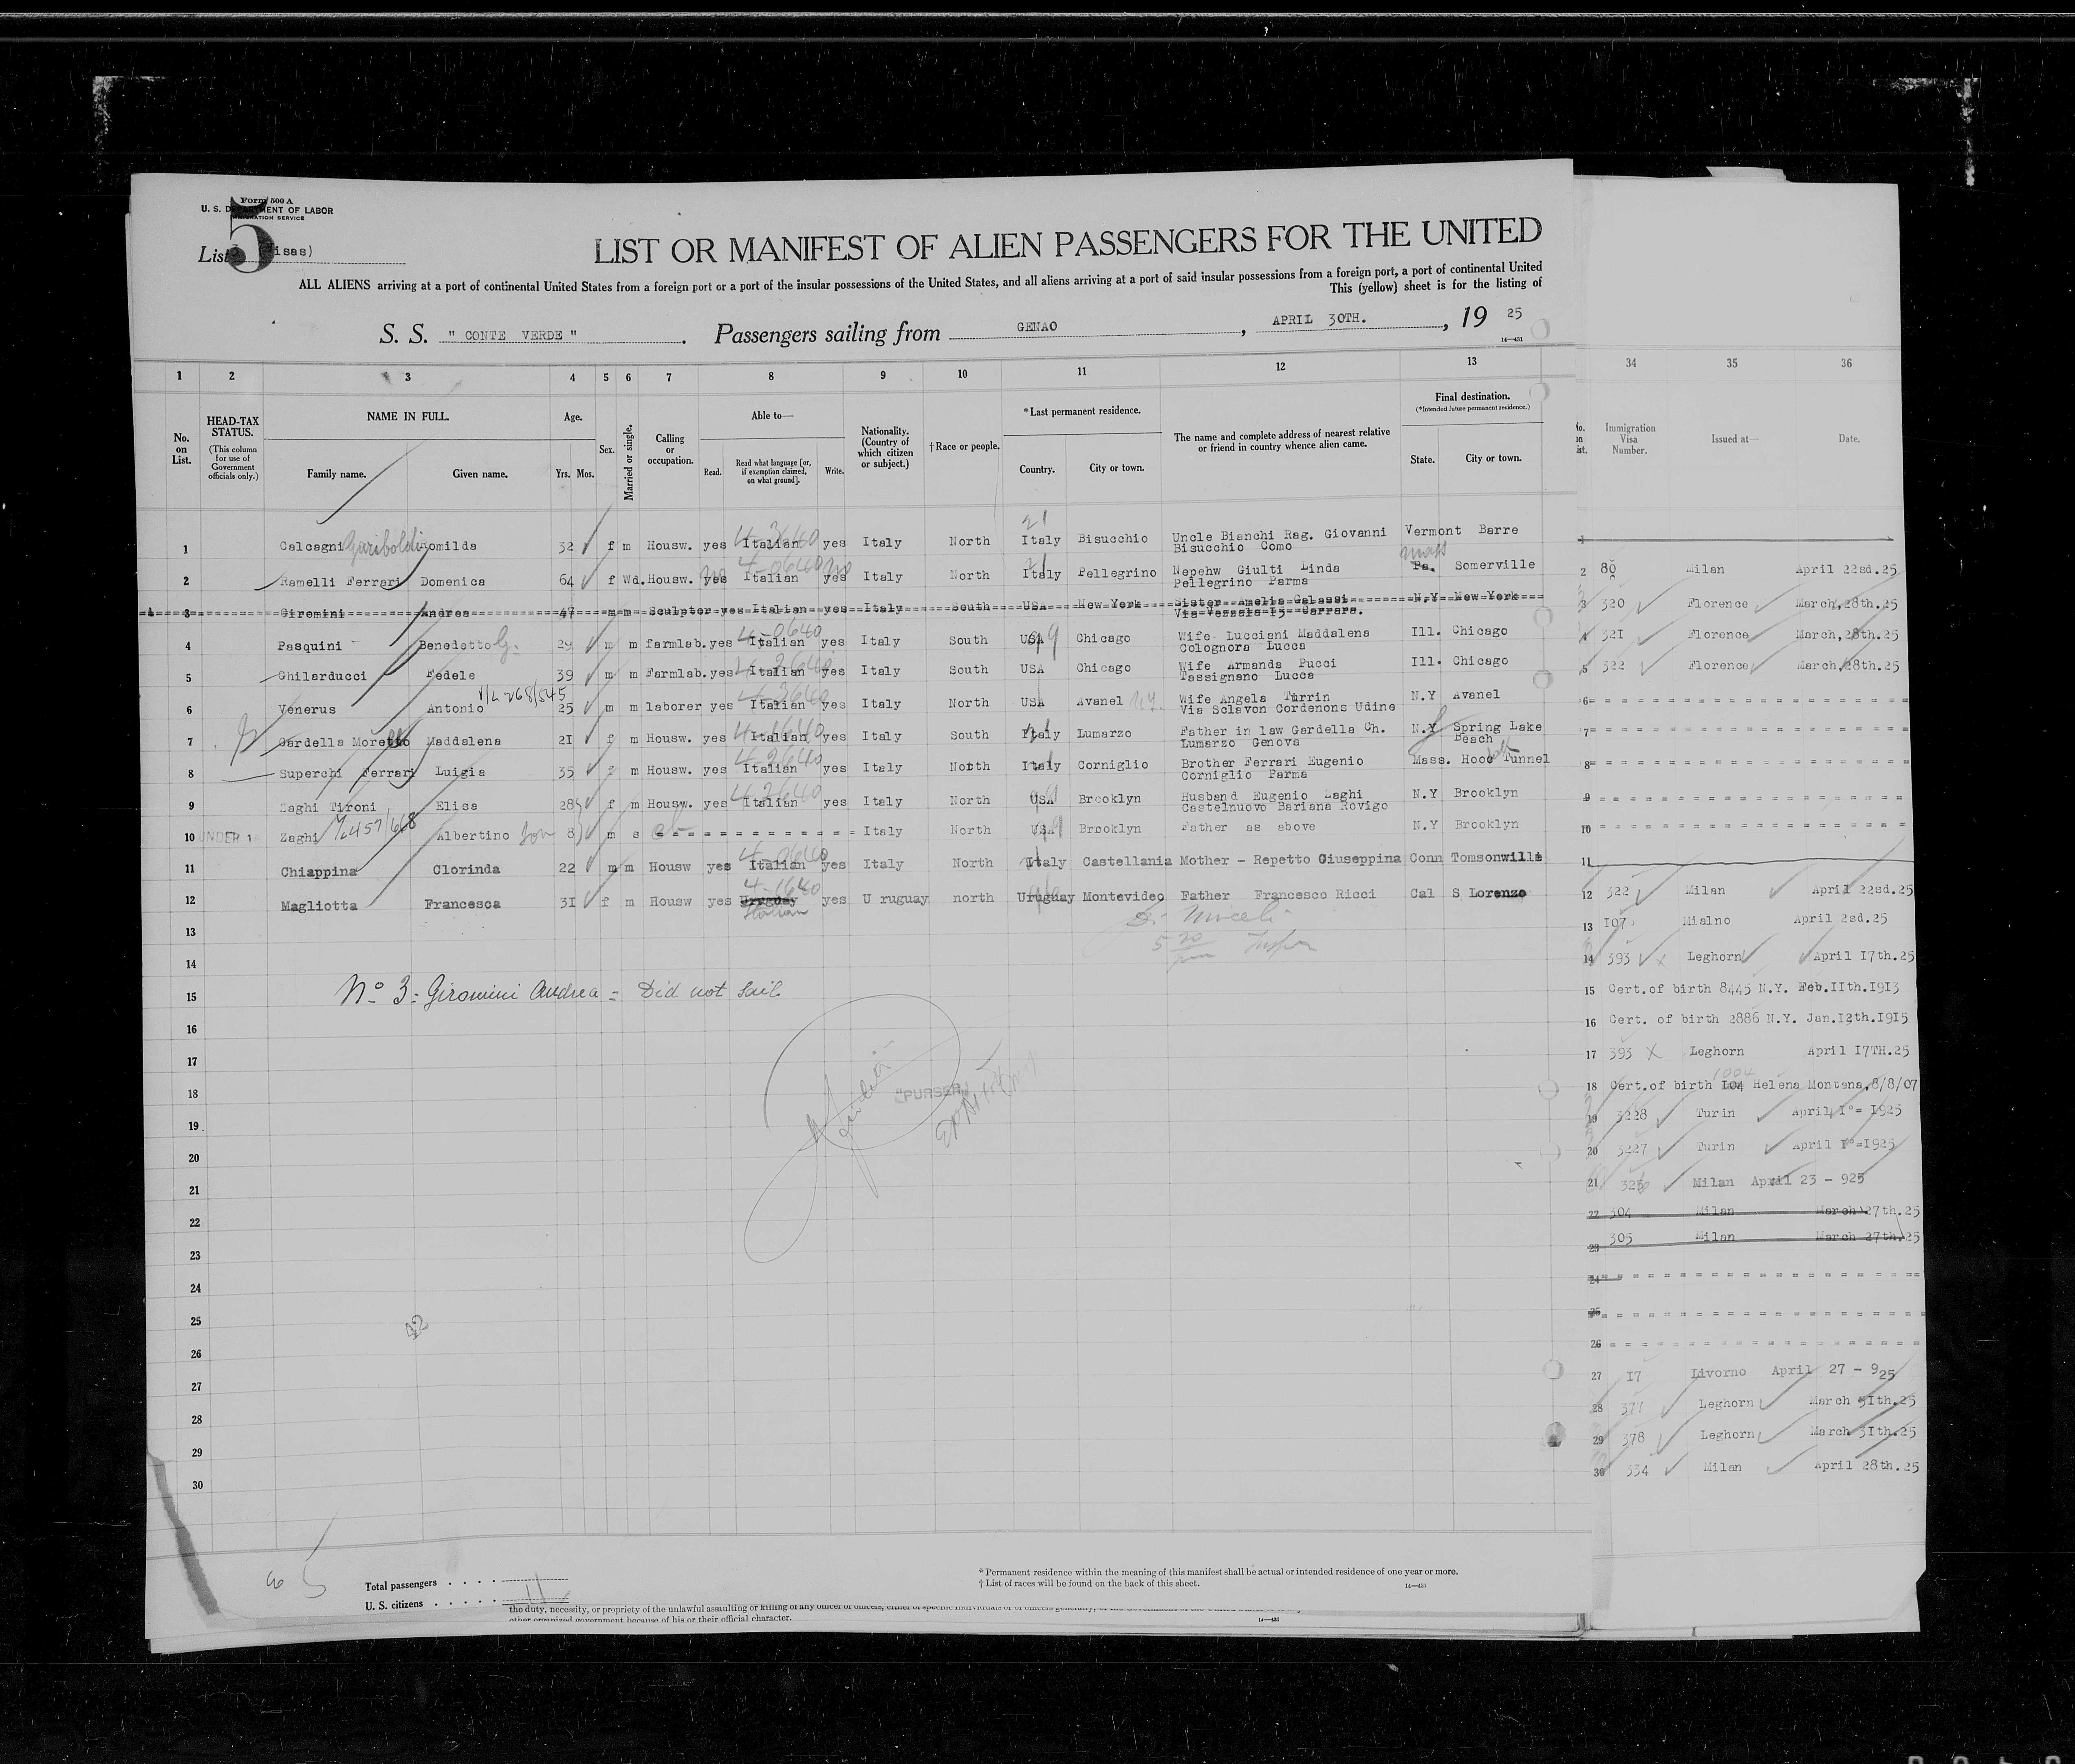 Form 500 A
U. S. DEPARTMENT OF LABOR
IMMIGRATION SERVICE
List 5 isas)
LIST OR MANIFEST OF ALIEN PASSENGERS FOR THE UNITED
ALL ALIENS arriving at a port of continental United States from a foreign port or a port of the insular possessions of the United States, and all aliens arriving at a port of said insular possessions from a foreign port, a port of continental United
This (yellow) sheet is for the listing of
S. S. " CONTE VERDE " . Passengers sailing from GENAO , APRIL 30TH. , 19 25
14—431
1 2 3 4 5 6 7 8 9 10 11 12 13 34 35 36
No. on List.
HEAD-TAX STATUS.
(This column for use of Government officials only.)
NAME IN FULL.
Family name. Given name.
Age.
Yrs. Mos.
Sex.
Married or single.
Calling or occupation.
Able to—
Read. Read what language [or, if exemption claimed, on what ground]. Write.
Nationality. (Country of which citizen or subject.)
†Race or people.
*Last permanent residence.
Country. City or town.
The name and complete address of nearest relative or friend in country whence alien came.
Final destination.
(*Intended future permanent residence.)
State. City or town.
Immigration Visa Number. Issued at— Date.
21
1 Calcagni Gariboldi Romilda 32 f m Housw. yes Italian yes Italy North Italy Bisucchio Uncle Bianchi Rag. Giovanni Vermont Barre
Bisucchio Como
2 Ramelli Ferrari Domenica 64 f Wd. Housw. yes Italian yes Italy North Italy Pellegrino Nepehw Giulti Linda Pa. Mass Somerville
Pellegrino Parma
3 Giromini Andrea 47 m m Sculptor yes Italian yes Italy South USA New York Sister Amelia Galassi N.Y New York
Via Vezzala 15 Carrara.
4 Pasquini Benedetto G. 29 m m farmlab. yes Italian yes Italy South USA Chicago Wife Lucciani Maddalena Ill. Chicago
Colognora Lucca
5 Ghilarducci Fedele 39 m m Farmlab. yes Italian yes Italy South USA Chicago Wife Armanda Pucci Ill. Chicago
Tassignano Lucca
6 Venerus Antonio 25 m m laborer yes Italian yes Italy North USA Avanel N.Y. Wife Angela Turrin N.Y Avanel
Via Sclavon Cordenons Udine
7 Gardella Moretto Maddalena 21 f m Housw. yes Italian yes Italy South Italy Lumarzo Father in law Gardella Ch. N.Y Spring Lake
Lumarzo Genova Beach
8 Superchi Ferrari Luigia 35 f m Housw. yes Italian yes Italy North Italy Corniglio Brother Ferrari Eugenio Mass. Hood Tunnel
Corniglio Parma
9 Zaghi Tironi Elisa 28 f m Housw. yes Italian yes Italy North USA Brooklyn Husband Eugenio Zaghi N.Y Brooklyn
Castelnuovo Bariana Rovigo
10 UNDER 1 Zaghi Albertino Son 8 m s Italy North USA Brooklyn Father as above N.Y Brooklyn
11 Chiappina Clorinda 22 m m Housw yes Italian yes Italy North Italy Castellania Mother - Repetto Giuseppina Conn Tomsonwille
12 Magliotta Francesca 31 f m Housw yes Uruguay yes U ruguay north Uruguay Montevideo Father Francesco Ricci Cal S Lorenzo
Italian
13
14
No 3: Giromini Andrea = Did not Sail
15
16
17
18
19
20
21
22
23
24
25
26
27
28
29
30
"PURSER"
42
Total passengers . . . . 11
U. S. citizens . . . . .
* Permanent residence within the meaning of this manifest shall be actual or intended residence of one year or more.
† List of races will be found on the back of this sheet.
14—431
the duty, necessity, or propriety of the unlawful assaulting or killing of any officer or officers, either of specific individuals or of officers generally,
other organized government because of his or their official character.
14—431
2 80 Milan April 22sd.25
3 320 Florence March,28th.25
4 321 Florence March,28th.25
5 322 Florence March,28th.25
6
7
8
9
10
11
12 322 Milan April 22sd.25
13 197 Mialno April 2sd.25
14 393 Leghorn April 17th.25
15 Cert.of birth 8445 N.Y. Feb.11th.1913
16 Cert. of birth 2886 N.Y. Jan.12th.1915
17 393 X Leghorn April 17TH.25
18 Cert.of birth 104 1004 Helena Montana,8/8/07
19 3228 Turin April 1°= 1925
20 3227 Turin April 1°=1925
21 326 Milan April 23 - 925
22 304 Milan March 27th.25
23 305 Milan March 27th.25
24
25
26
27 17 Livorno April 27 - 925
28 377 Leghorn March 31th.25
29 378 Leghorn March 31th.25
30 334 Milan April 28th.25